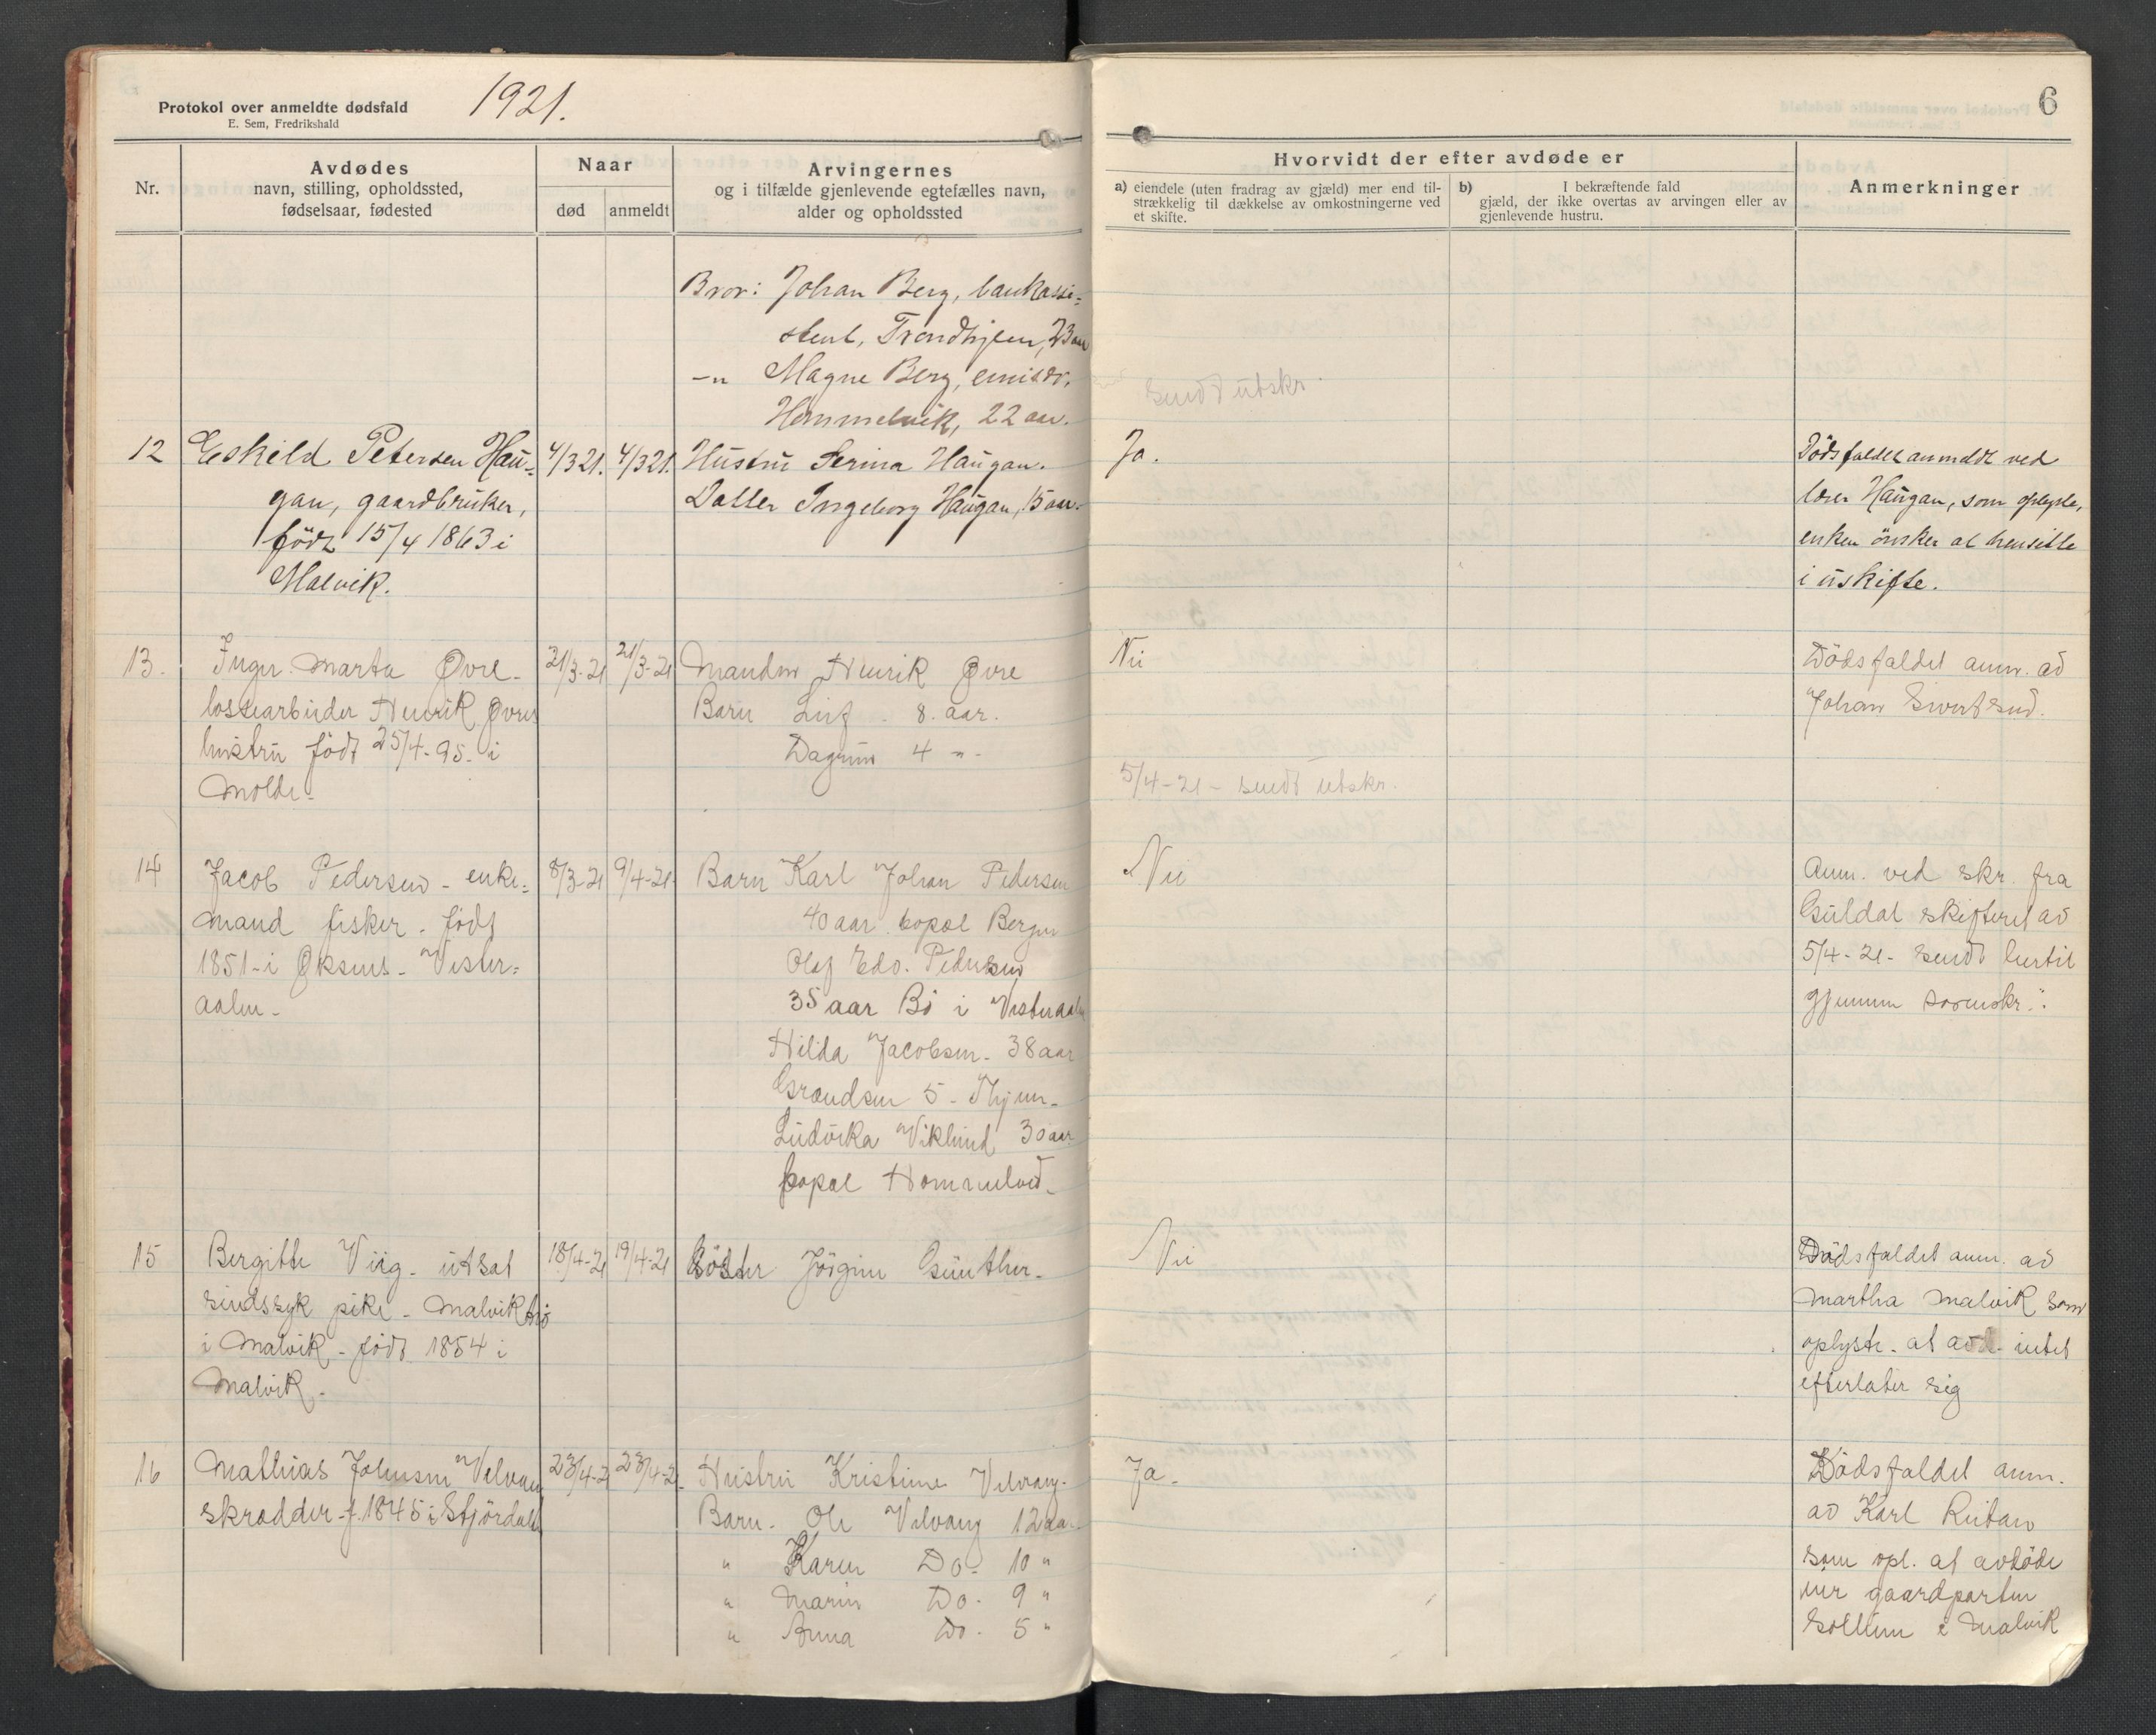 Protokol over anmeldte dødsfald
E. Sem, Fredrikshald
1921.
Nr.
Avdødes
navn, stilling, opholdssted,
fødselsaar, fødested
Naar
død
anmeldt
Arvingernes
og i tilfælde gjenlevende egtefælles navn,
alder og opholdssted
6
Hvorvidt der efter avdøde er
a) eiendele (uten fradrag av gjæld) mer end til-
strækkelig til dækkelse av omkostningerne ved
et skifte.
b) I bekræftende fald
gjæld, der ikke overtas av arvingen eller av
gjenlevende hustru.
Anmerkninger
Bror: Johan Berg, bankassi-
stent, Trondhjem, 23 aar
-"- Magne Berg,
Hommelvik, 22 aar.
sendt utskr.
12
Eskild Petersen Hau-
gan, gaardbruker,
født 15/4 1863 i
Malvik.
4/3 21.
4/3 21.
Hustru Serina Haugan.
Datter Ingeborg Haugan, 15 aar.
Ja.
Dödsfaldet anmeldt ved
lærer Haugan, som oplyste,
enken önsker at hensitte
i uskifte.
13.
Inger Marta Øvre -
lossearbeider Henrik Øvres
hustru født 25/4-95. i
Molde.
21/3-21
21/3-21
Manden Henrik Øvre
Barn Leif. 8. aar.
Dagrun 4 " -
Nei
5/4-21 - sendt utskr.
Dödsfaldet anm. av
Johan Sivertsen.
14
Jacob Pedersen - enke-
mand fisker. født
1851 - i Øksnes - Vester-
aalen -
8/3-21
9/4-21.
Barn Karl Johan Pedersen
40 aar bopæl Bergen
Olaf Edv. Pedersen
35 aar Bö i Vesteraalen
Hilda Jacobsen - 38 aar
Grandsen 5 - Thjem -
Ludvika Viklund 30 aar
bopæl Hommelvik -
Nei
Anm. ved skr. fra
Guldal skifteret av
5/4-21 - sendt hertil
gjennem sorenskr.
15
Bergitte Viig - utsat
sindssyk pike - Malviktrø
i Malvik - født 1854 i
Malvik.
18/4-21
19/4-21
Söster Jörgine Günther -
Nei
Dödsfaldet anm. av
Martha Malvik som
oplyste - at avd. intet
efterlater sig
16
Mathias Johnsen Velvang
skrædder - f. 1845 i Stjördalen
23/4-21
23/4-21.
Hustru Kristine Velvang -
Barn - Ole Velvang 12 aar.
" Karen Do - 10 "
" Marie Do - 9 "
" Anna Do - 5 "
Ja -
Dödsfaldet anm.
av Karl Reitan
som opl. at avdöde
eier gaardparten
Sollien i Malvik